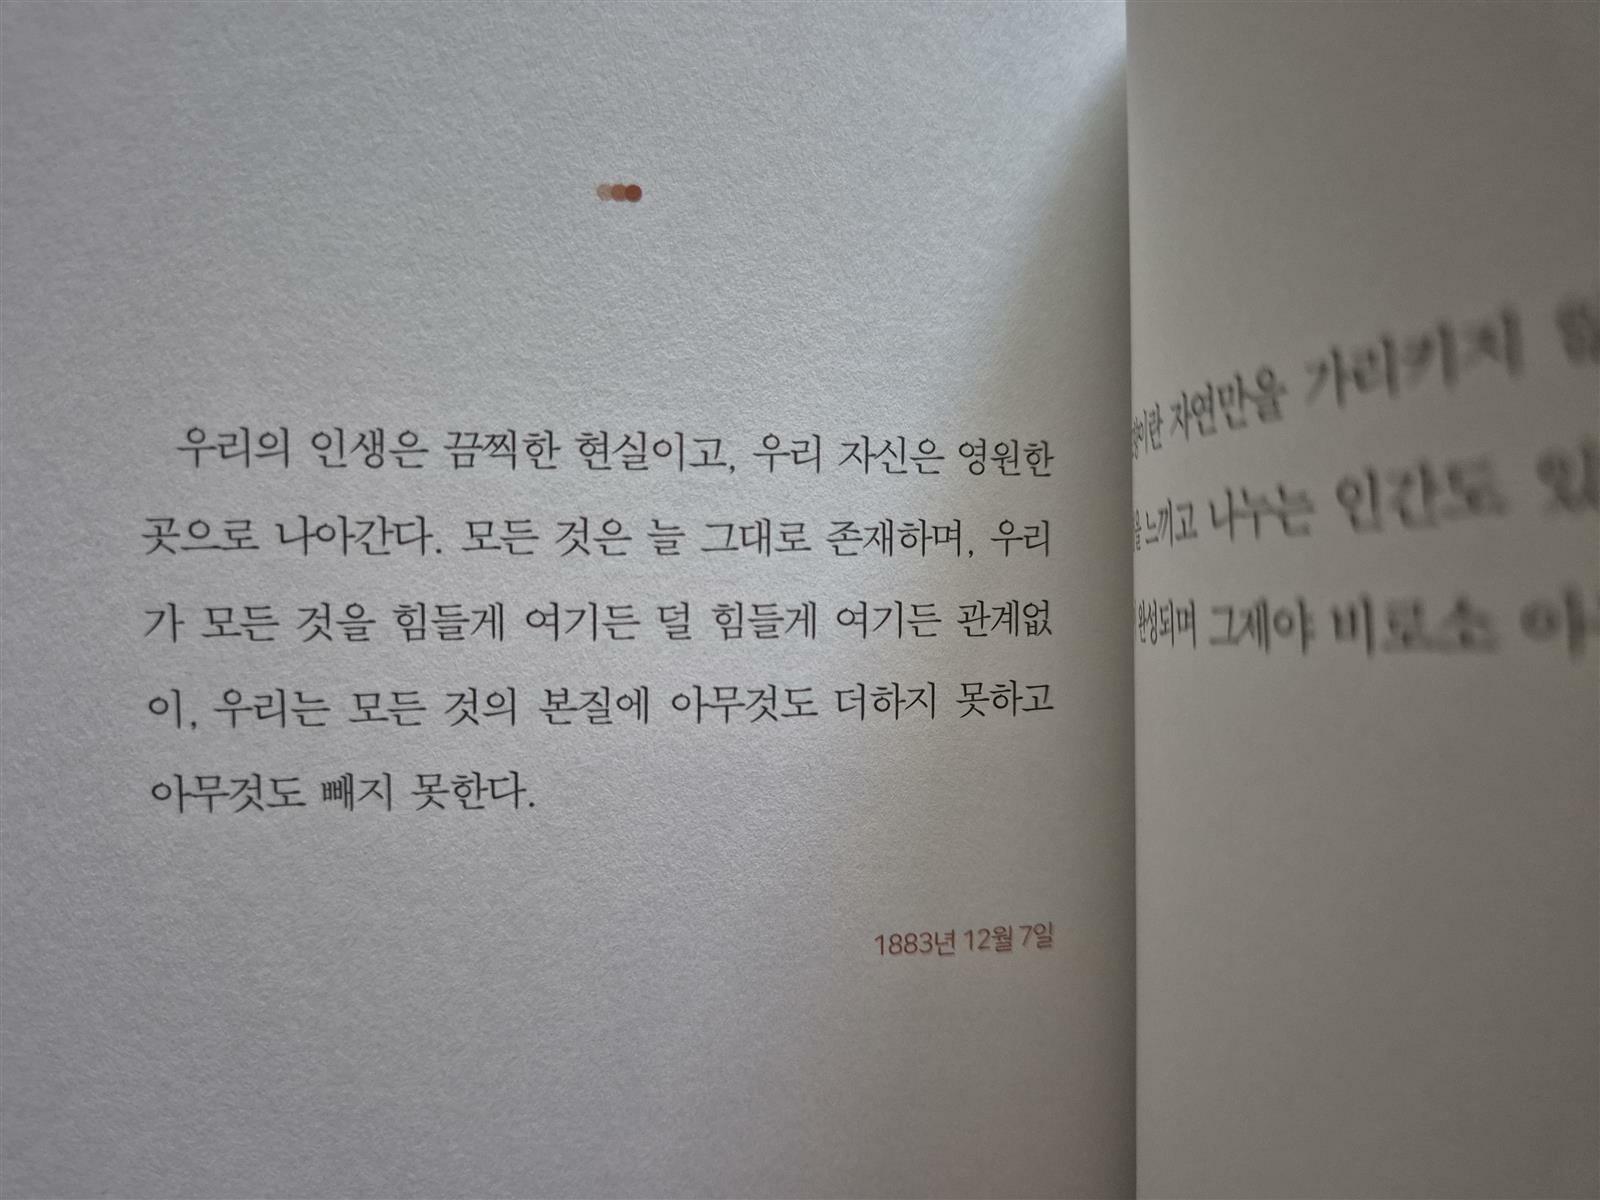 우리의 인생은 끔찍한 현실이고, 우리 자신은 영원한
곳으로 나아간다. 모든 것은 늘 그대로 존재하며, 우리
가 모든 것을 힘들게 여기든 덜 힘들게 여기든 관계없
이, 우리는 모든 것의 본질에 아무것도 더하지 못하고
아무것도 빼지 못한다.
1883년 12월 7일
자연만을 가리키지
느끼고 나누는 인간도
완성되며 그제야 비로소